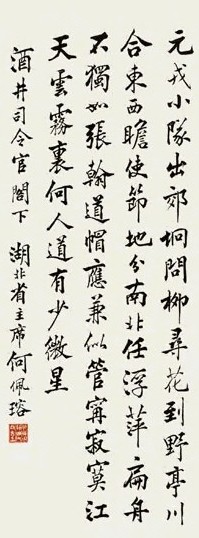 元戎小隊出郊坰問柳尋花到野亭川
合東西瞻使節地分南北任浮萍扁舟
不獨如張翰道帽應兼似管寧寂寞江
天雲霧裏何人道有少微星
酒井司令官閣下 湖北省主席何佩瑢